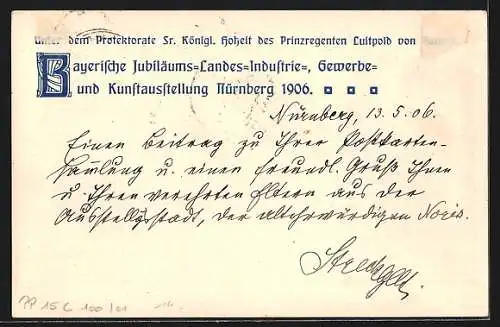 Unter dem Protektorate Sr. Königl. Hoheit des Prinzregenten Luitpold von
Bayerische Jubiläums-Landes-Industrie-, Gewerbe-
und Kunstausstellung Nürnberg 1906.
Nürnberg, 13.5.06.
Einen Beitrag zu Ihrer Postkarten-
sammlung u. einen freundl. Gruß Ihnen
u. Ihren verehrten Eltern aus der
Ausstellgsstadt, der altehrwürdigen Noris.
PP 15 C 100/01